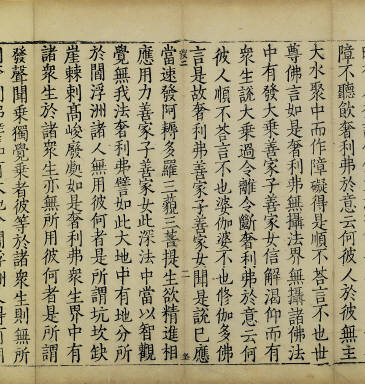 障不聽飲奢利弗於意云何彼人於彼無主
大水聚中而作障礙得是順不荅言不也世
尊佛言如是奢利弗無攝法界無攝諸佛法
中有發大乗善家子善家女信解渴仰而有
衆生說大乗過令離令斷奢利弗於意云何
彼人順不荅言不也婆伽婆不也修伽多佛
言是故奢利弗善家子善家女聞是說已應
二
當速發阿耨多羅三藐三菩提生欲精進相
應用力善家子善家女此深法中當以智觀
覺無我法奢利弗譬如此大地中有地分所
於閻浮洲諸人無用彼何者是所謂坑坎缺
崖棘刺髙峻廢如是奢利弗衆生界中有
諸衆生於諸衆生亦無所用彼何者是所謂
發聲聞乗獨覺乗者彼等於諸衆生則無所